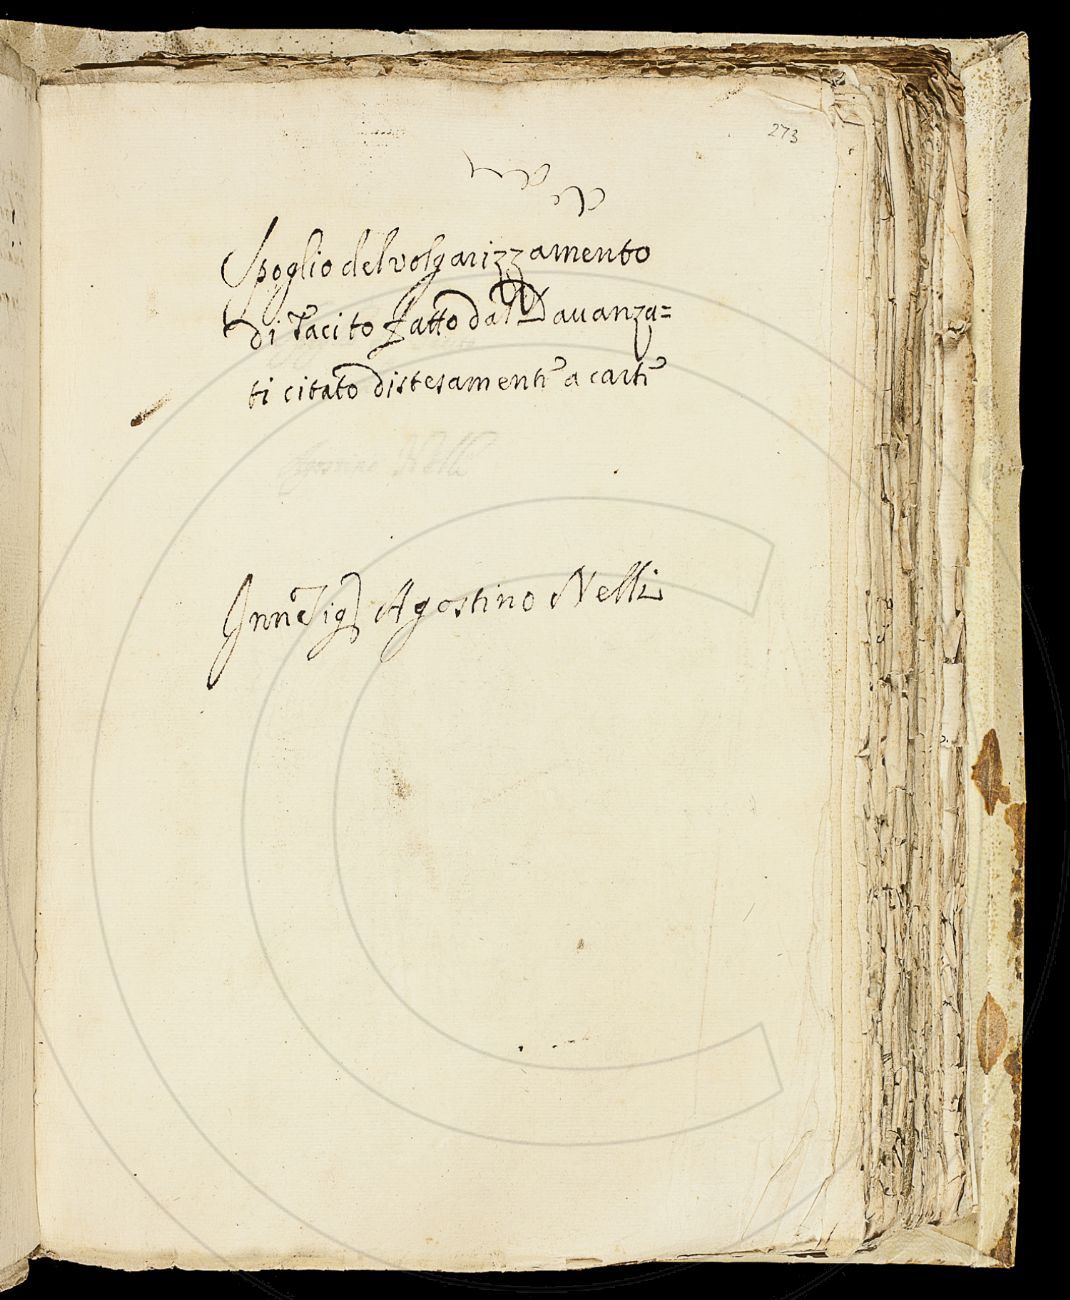 273
Spoglio del volgarizzamento
di Tacito fatto dal Davanza=
ti citato distesamente a carte
Agostino Nelli
Agostino Nelli